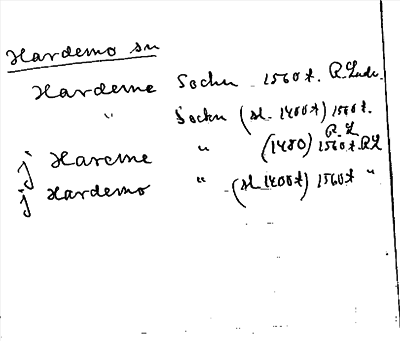 Hardemo sn
Hardeme Sockn 1560 t. R. Lude.
" Sockn (sl. 1400 t) 1560 t.
R. L
j Hareme " (1480) 1560 t. RL
j Hardemo " (sl. 1400 t) 1560 t "